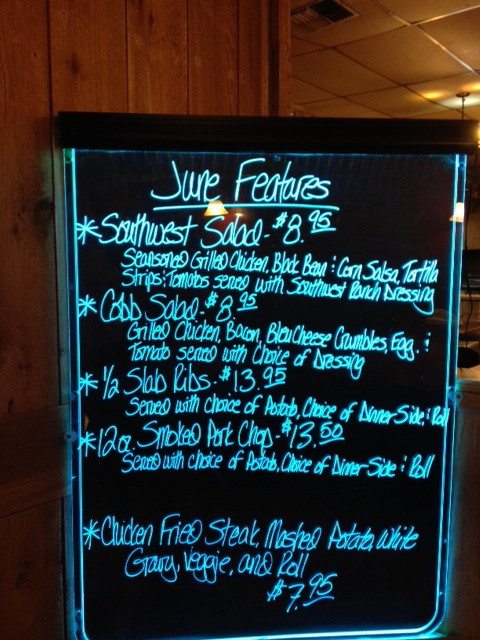 June Features
* Southwest Salad - $8.95
Seasoned Grilled Chicken, Black Bean & Corn Salsa, Tortilla
Strips & Tomatos served with Southwest Ranch Dressing
* Cobb Salad - $8.95
Grilled Chicken, Bacon, Bleu Cheese Crumbles, Egg, &
Tomato served with Choice of Dressing
* 1/2 Slab Ribs - $13.95
Served with choice of Potato, Choice of Dinner Side, & Roll
* 12 oz. Smoked Pork Chop - $13.50
Served with choice of Potato, Choice of Dinner Side & Roll
* Chicken Fried Steak, Mashed Potato, White
Gravy, Veggie, and Roll
$7.95